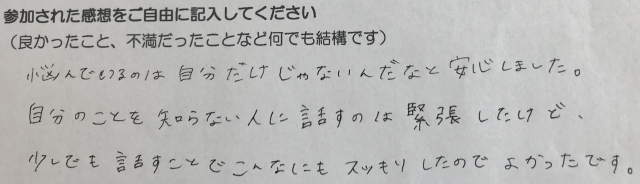 参加された感想をご自由に記入してください
（良かったこと、不満だったことなど何でも結構です）
悩んでいるのは自分だけじゃないんだなと安心しました。
自分のことを知らない人に話すのは緊張したけど、
少しでも話すことでこんなにもスッキリしたのでよかったです。